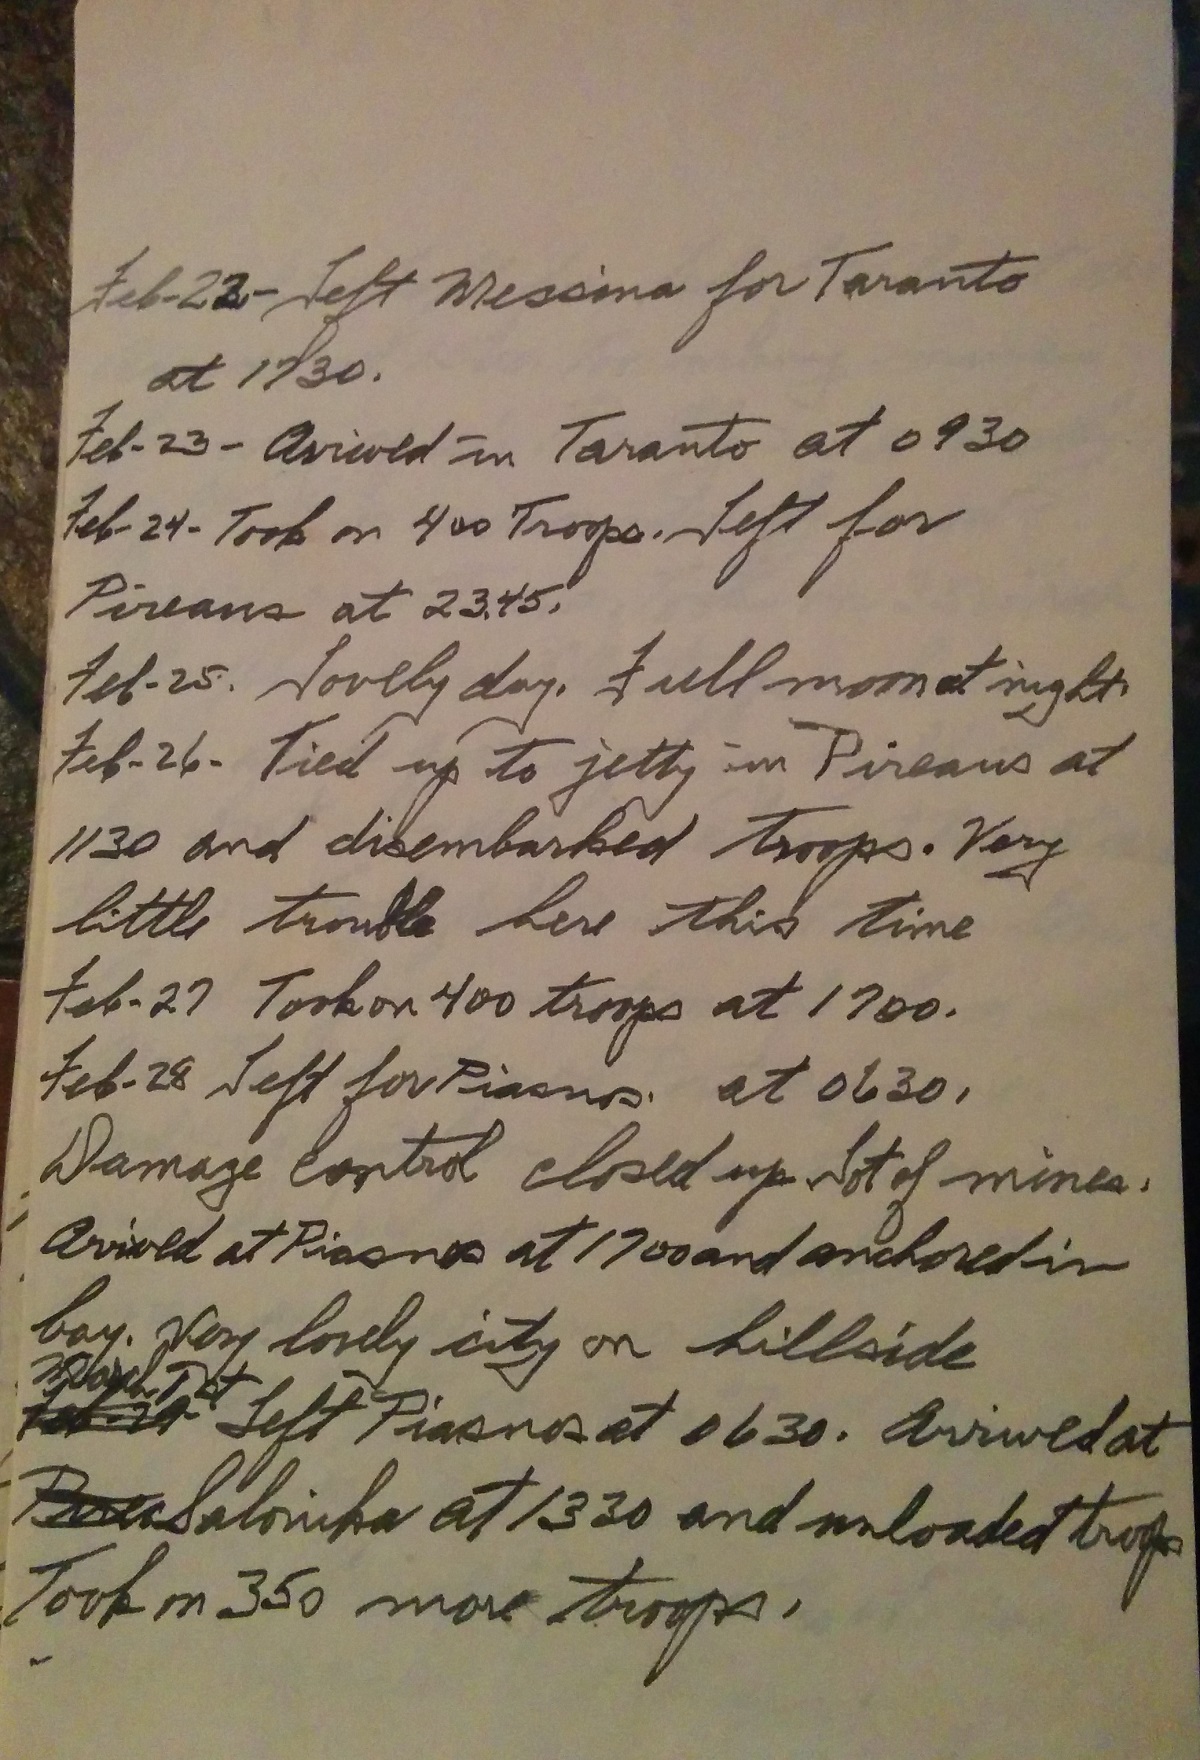 Feb-22- Left Messina for Taranto
at 1730.
Feb-23- Arived in Taranto at 0930
Feb-24- Took on 400 Troops. Left for
Pireaus at 2345.
Feb-25. Lovely day. Full moon at night.
Feb-26- Tied up to jetty in Pireaus at
1130 and disembarked troops. Very
little trouble here this time
Feb-27 Took on 400 troops at 1700.
Feb-28 Left for Piasnos. at 0630.
Damage Control closed up. Lot of mines.
Arived at Piasnos at 1700 and anchored in
bay. Very lovely city on hillside
March 1st
Left Piasnos at 0630. Arrived at
Salonika at 1330 and unloaded troops
Took on 350 more troops.